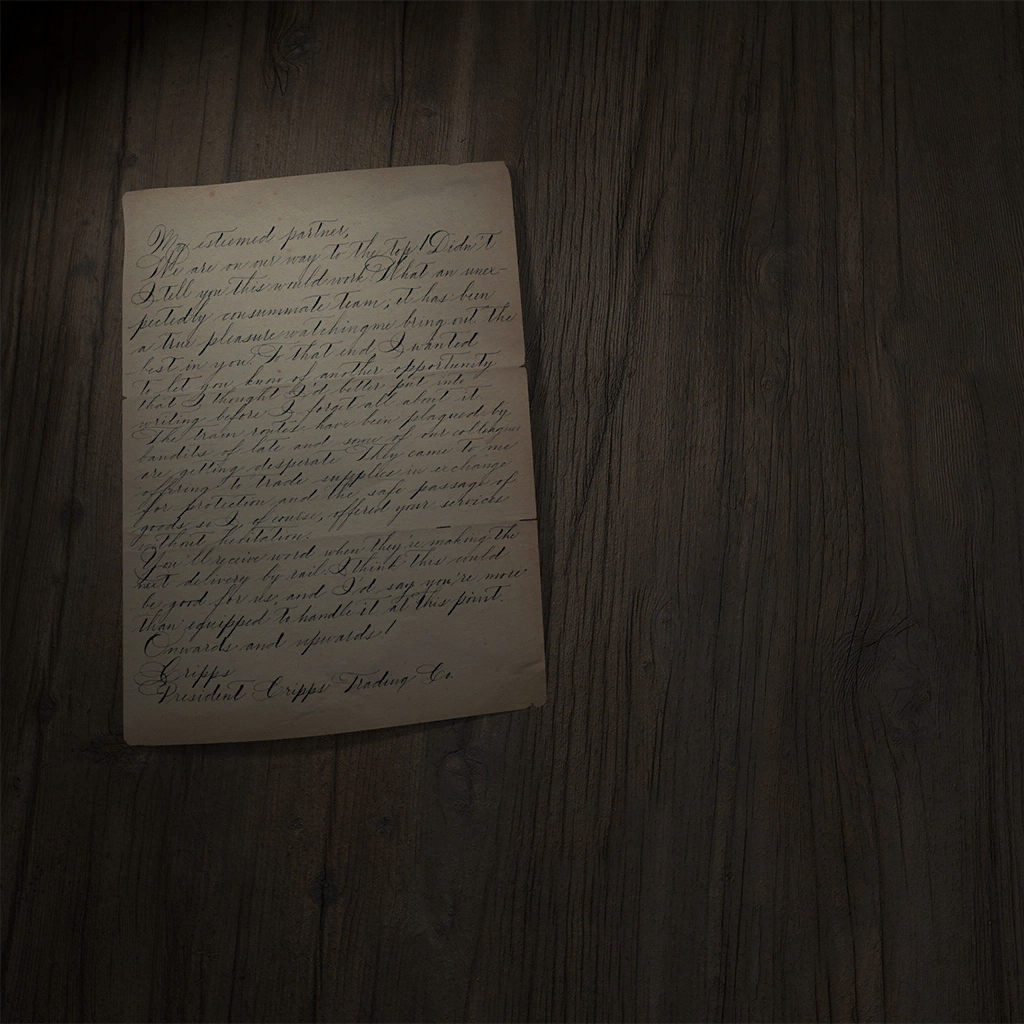 My esteemed partner,
We are on our way to the top! Didn't
I tell you this would work? What an unex-
pectedly consummate team, it has been
a true pleasure watching me bring out the
best in you. To that end, I wanted
to let you know of another opportunity
that I thought I'd better put into
writing before I forget all about it.
The train routes have been plagued by
bandits of late and some of our colleagues
are getting desperate. They came to me
offering to trade supplies in exchange
for protection and the safe passage of
goods, so I, of course, offered your services
without hesitation.
You'll receive word when they're making the
next delivery by rail. I think this could
be good for us, and I'd say you're more
than equipped to handle it at this point.
Onwards and upwards!
Cripps
President Cripps Trading Co.